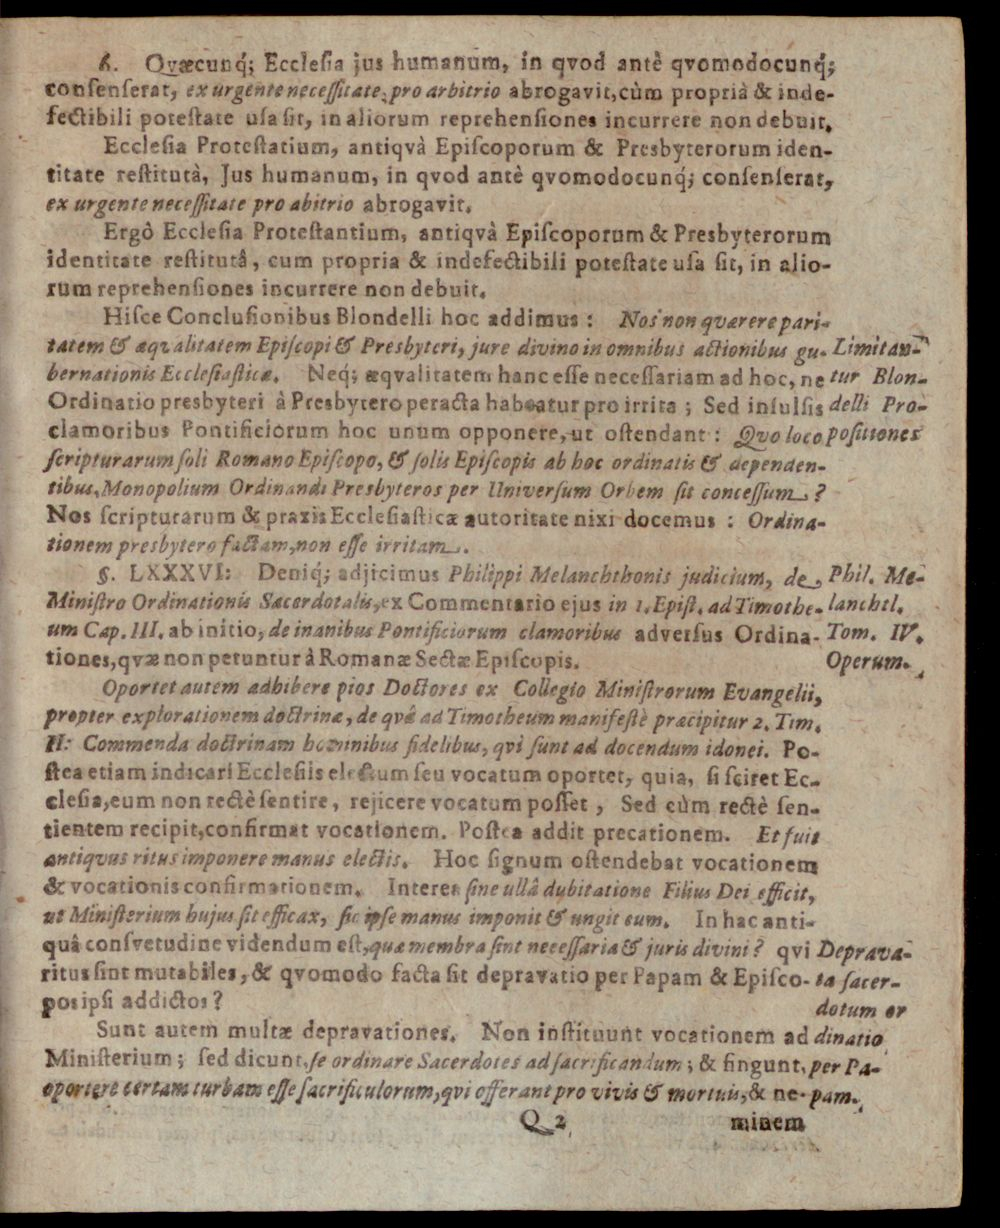 6. Qvæcunq́; Ecclesia jus humanum, in qvod antè qvomodocunq́;
consenserat, ex urgente necessitate, pro arbitrio abrogavit, cùm propriâ & inde-
fectibili potestate usa sit, in aliorum reprehensiones incurrere non debuit.
Ecclesia Protestatium, antiqvâ Episcoporum & Presbyterorum iden-
titate restitutâ, Jus humanum, in qvod antè qvomodocunq́; consenserat,
ex urgente necessitate pro abitrio abrogavit.
Ergò Ecclesia Protestantium, antiqvâ Episcoporum & Presbyterorum
identitate restitutâ, cum propria & indefectibili potestate usa sit, in alio-
rum reprehensiones incurrere non debuit.
Hisce Conclusionibus Blondelli hoc addimus: Nos non quærere pari-
tatem & æqvalitatem Episcopi & Presbyteri, jure divino in omnibus actionibus gu-
bernationis Ecclesiasticæ. Neq; æqvalitatem hanc esse necessariam ad hoc, ne
Ordinatio presbyteri â Presbytero peracta habeatur pro irrita; Sed insulsis
clamoribus Pontificiorum hoc unum opponere, ut ostendant: Qvo loco
scripturarum soli Romano Episcopo, & solis Episcopis ab hoc ordinatis & dependen-
tibus, Monopolium Ordinandi Presbyteros per Universum Orbem sit concessum?
Nos scripturarum & praxis Ecclesiasticæ autoritate nixi docemus: Ordina-
tionem presbytero factam, non esse irritam.
Limitan-
tur Blon-
delli Pro-
positiones
§. LXXXVI: Deniq́; adjicimus Philippi Melanchthonis judicium, de
Ministro Ordinationis Sacerdotalis, ex Commentario ejus in 1. Epist. ad Timothe-
um Cap. III. ab initio, de inanibus Pontificiorum clamoribus adversus Ordina-
tiones, qvæ non petuntur â Romanæ Sectæ Episcopis.
Phil. Me-
lanchtl.
Tom. IV.
Operum.
Oportet autem adhibere pios Doctores ex Collegio Ministrorum Evangelii,
propter explorationem doctrinæ, de qvâ ad Timotheum manifestè præcipitur 2. Tim.
II: Commenda doctrinam hominibus fidelibus, qvi sunt ad docendum idonei. Po-
stea etiam indicari Ecclesiis electum seu vocatum oportet, quia, si sciret Ec-
clesia, eum non rectè sentire, rejicere vocatum posset, Sed cùm rectè sen-
tientem recipit, confirmat vocationem. Postea addit precationem. Et fuit
antiqvus ritus imponere manus electis. Hoc signum ostendebat vocationem
& vocationis confirmationem. Interea sine ullâ dubitatione Filius Dei efficit,
ut Ministerium hujus sit efficax, sic ipse manus imponit & ungit eum. In hac anti-
quâ consvetudine videndum est, quæ membra sint necessaria & juris divini? qvi
ritus sint mutabiles, & qvomodo facta sit depravatio per Papam & Episco-
pos ipsi addictos?
Sunt autem multæ depravationes. Non instituunt vocationem ad
Ministerium; sed dicunt, se ordinare Sacerdotes ad sacrificandum; & fingunt,
oportere certam turbam esse sacrificulorum, qvi offerant pro vivis & mortuis, & ne-
Deprava-
ta sacer-
dotum or
dinatio
per Pa-
pam.
Q 2
minem